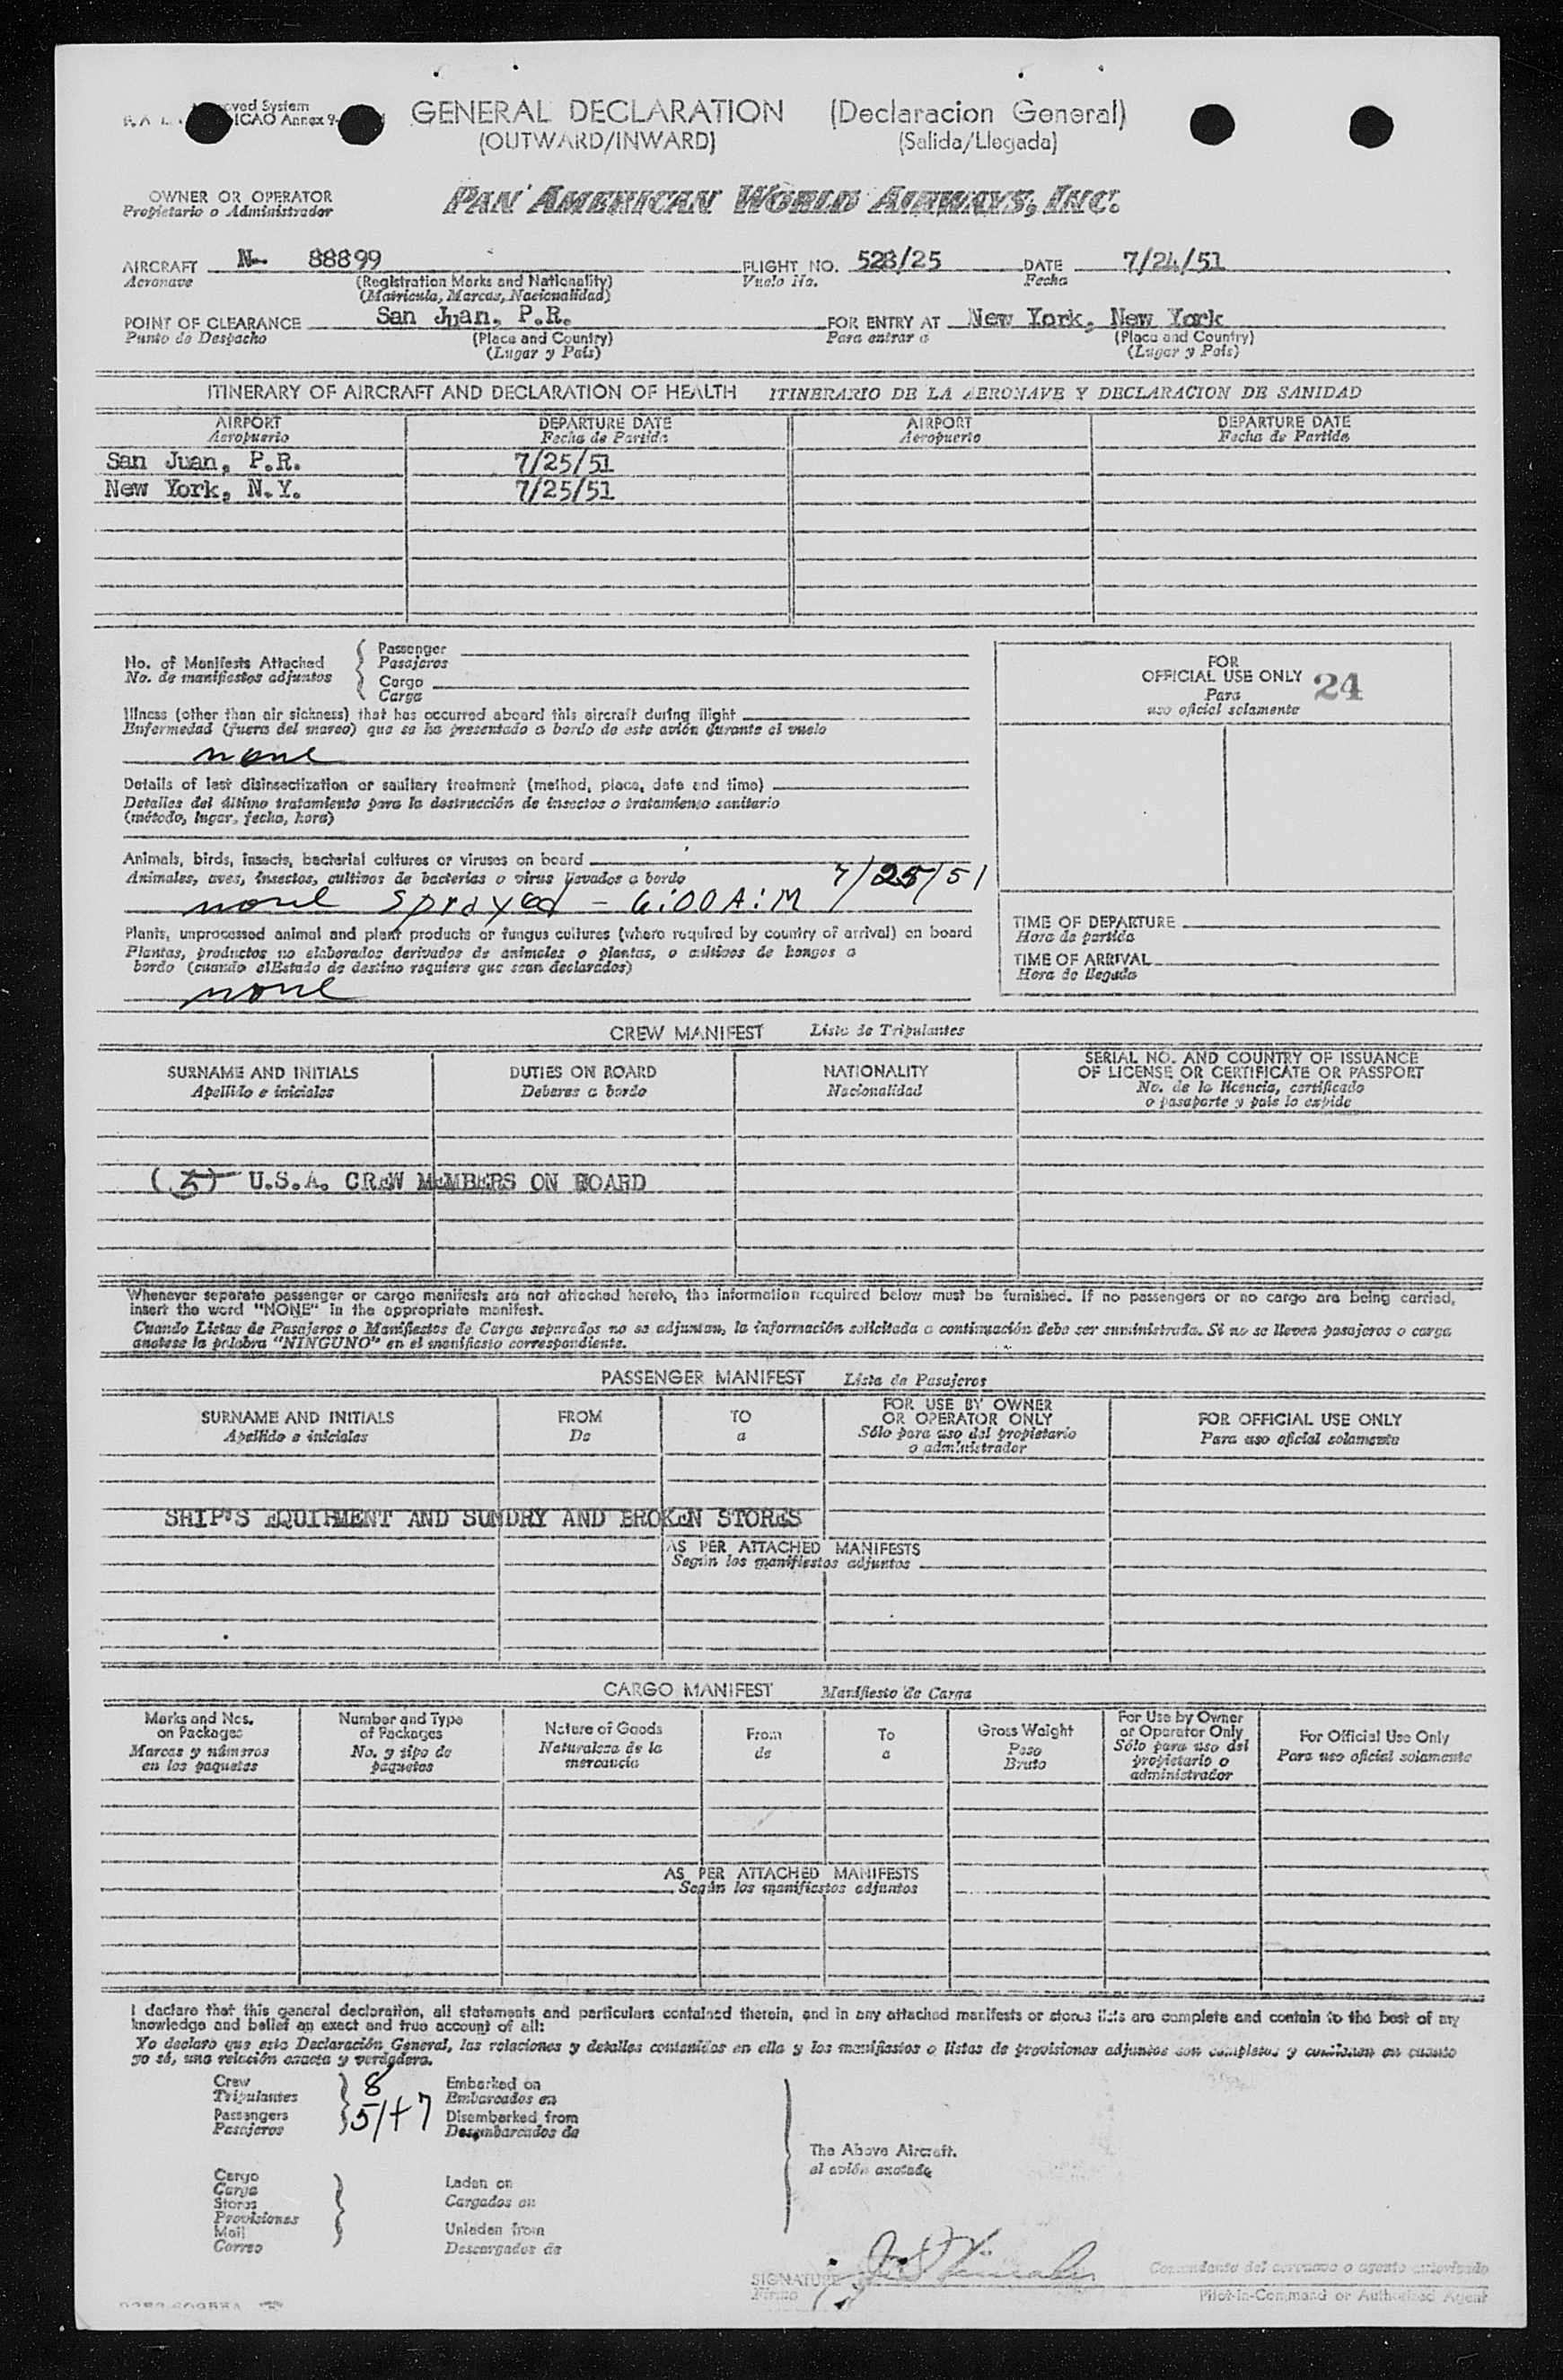 GENERAL DECLARATION (Declaracion General)
(OUTWARD/INWARD) (Salida/Llegada)
oved System
ICAO Annex 9-
OWNER OR OPERATOR
Propietario o Administrador
PAN AMERICAN WORLD AIRWAYS, INC.
AIRCRAFT N- 88899 FLIGHT NO. 528/25 DATE 7/24/51
Aeronave (Registration Marks and Nationality) Vuelo No. Fecha
(Matricula, Marcas, Nacionalidad)
POINT OF CLEARANCE San Juan, P.R. FOR ENTRY AT New York, New York
Punto de Despacho (Place and Country) Para entrar a (Place and Country)
(Lugar y País) (Lugar y País)
ITINERARY OF AIRCRAFT AND DECLARATION OF HEALTH ITINERARIO DE LA AERONAVE Y DECLARACION DE SANIDAD
AIRPORT DEPARTURE DATE AIRPORT DEPARTURE DATE
Aeropuerto Fecha de Partida Aeropuerto Fecha de Partida
San Juan, P.R. 7/25/51
New York, N.Y. 7/25/51
No. of Manifests Attached
No. de manifiestos adjuntos
Passenger
Pasajeros
Cargo
Carga
FOR
OFFICIAL USE ONLY 24
Para
uso oficial solamente
Illness (other than air sickness) that has occurred aboard this aircraft during flight
Enfermedad (fuera del mareo) que se ha presentado a bordo de este avión durante el vuelo
none
Details of last disinsectization or sanitary treatment (method, place, date and time)
Detalles del último tratamiento para la destrucción de insectos o tratamiento sanitario
(método, lugar, fecha, hora)
Animals, birds, insects, bacterial cultures or viruses on board
Animales, aves, insectos, cultivos de bacterias o virus llevados a bordo 7/25/51
none Sprayed - 6:00 A:M
Plants, unprocessed animal and plant products or fungus cultures (where required by country of arrival) on board
Plantas, productos no elaborados derivados de animales o plantas, o cultivos de hongos a
bordo (cuando elEstado de destino requiere que sean declarados)
none
TIME OF DEPARTURE
Hora de partida
TIME OF ARRIVAL
Hora de llegada
CREW MANIFEST Lista de Tripulantes
SURNAME AND INITIALS DUTIES ON BOARD NATIONALITY SERIAL NO. AND COUNTRY OF ISSUANCE
Apellido e iniciales Deberes a bordo Nacionalidad OF LICENSE OR CERTIFICATE OR PASSPORT
No. de la licencia, certificado
o pasaporte y país lo expide
U.S.A. CREW MEMBERS ON BOARD
Whenever separate passenger or cargo manifests are not attached hereto, the information required below must be furnished. If no passengers or no cargo are being carried,
insert the word "NONE" in the appropriate manifest.
Cuando Listas de Pasajeros o Manifiestos de Carga separados no se adjuntan, la información solicitada a continuación debe ser suministrada. Si no se lleven pasajeros o carga
anotese la palabra "NINGUNO" en el manifiesto correspondiente.
PASSENGER MANIFEST Lista de Pasajeros
SURNAME AND INITIALS FROM TO FOR USE BY OWNER FOR OFFICIAL USE ONLY
Apellido e iniciales De a OR OPERATOR ONLY Para uso oficial solamente
Sólo para uso del propietario
o administrador
SHIP'S EQUIPMENT AND SUNDRY AND BROKEN STORES
AS PER ATTACHED MANIFESTS
Según los manifiestos adjuntos
CARGO MANIFEST Manifiesto de Carga
Marks and Nos. Number and Type Nature of Goods From To Gross Weight For Use by Owner For Official Use Only
on Packages of Packages Naturaleza de la de a Peso or Operator Only Para uso oficial solamente
Marcas y números No. y tipo de mercancia Bruto Sólo para uso del
en los paquetes paquetes propietario o
administrador
AS PER ATTACHED MANIFESTS
Según los manifiestos adjuntos
I declare that this general declaration, all statements and particulars contained therein, and in any attached manifests or stores lists are complete and contain to the best of my
knowledge and belief an exact and true account of all:
Yo declaro que esta Declaración General, las relaciones y detalles contenidos en ella y los manifiestos o listas de provisiones adjuntos son completos y contienen en cuanto
yo sé, una relación exacta y verdadera.
Crew 8 Embarked on
Tripulantes Embarcados en
Passengers 51+7 Disembarked from
Pasajeros Desembarcados de
The Above Aircraft.
el avión anotado
Cargo Laden on
Carga Cargados en
Stores
Provisiones
Mail Unladen from
Correo Descargados de
SIGNATURE
Firma
Comandante del aeronave o agente autorizado
Pilot-in-Command or Authorized Agent